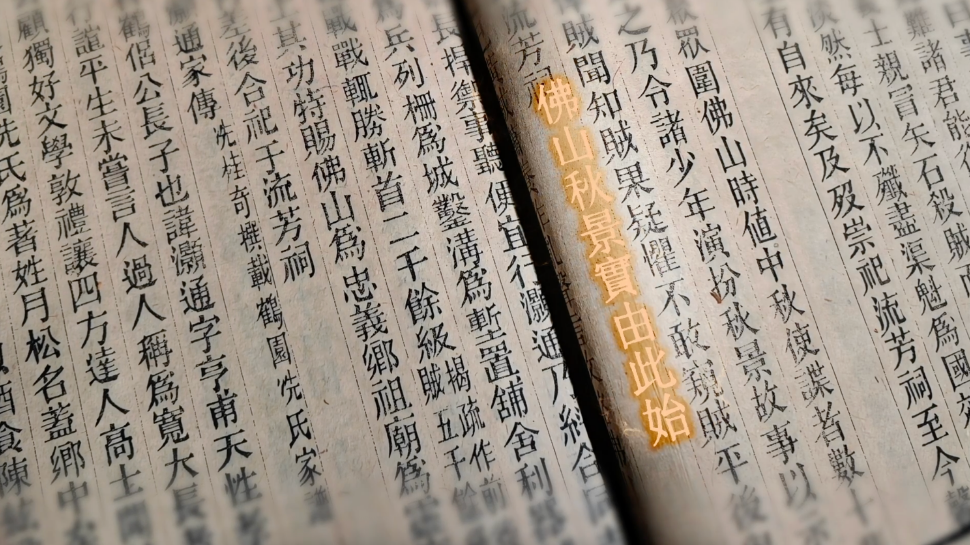 難諸君能
士親冒矢石殺賊
然每以不殲盡渠魁爲國
有自來矣及歿崇祀流芳祠至今
眾圍佛山時值中秋使諜者數十
之乃令諸少年演扮秋景故事以
賊聞知賊果疑懼不敢窺賊平後
流芳祠
佛山秋景實由此始
長捍禦事聽便宜行灝通乃糾合同
兵列柵爲城鑿溝爲塹置舖舍利
戰戰輒勝斬首二千餘級賊楊疏作五千餘
其功特賜佛山爲忠義鄉祖廟爲
後合祀于流芳祠
通家傳冼桂奇撰載鶴園冼氏家譜
鶴侶公長子也諱灝通字亨甫天性
誼平生未嘗言人過人稱爲寬大長
顧獨好文學敦禮讓四方達人高士
冼氏爲者姓月松名蓋鄉中
酒食陳